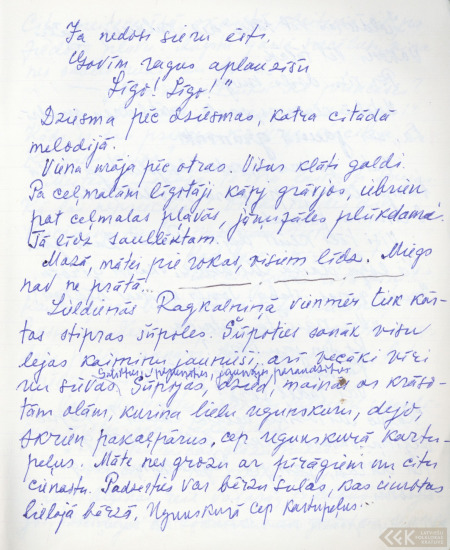 Ja nedosi sieru ēsti.
Govīm ragus aplauzīšu
Līgo! Līgo!"
Dziesma pēc dziesmas, katra citādā
melodijā.
Viena māja pēc otras. Visus klāti galdi.
Pa ceļmalām līgotāji kāpj grāvjos, iebrien
pat ceļmalas pļavās, jāņuzāles plūkdama.
Tā līdz saullēktam.
Mazā, mātei pie rokas, visiem līdz. Miegs
nav ne prātā...
Lieldienās Ragkalniņā vienmēr tiek kār-
tas stipras šūpoles. Šūpoties sanāk visu
lejas kaimiņu jaunieši, arī vecāki vīri
un sievas
Šūpojas, dzied, mainās ar krāso-
tām olām, kurina lielu ugunskuru, dejo,
skrien paskaļpārus, cep ugunskurā kartu-
peļus. Māte nes grozu ar pīrāgiem un citu
cienastu. Padzerties var bērzu sulas, kas
lielajā bērzā. Ugunskurā cep kartupeļus...